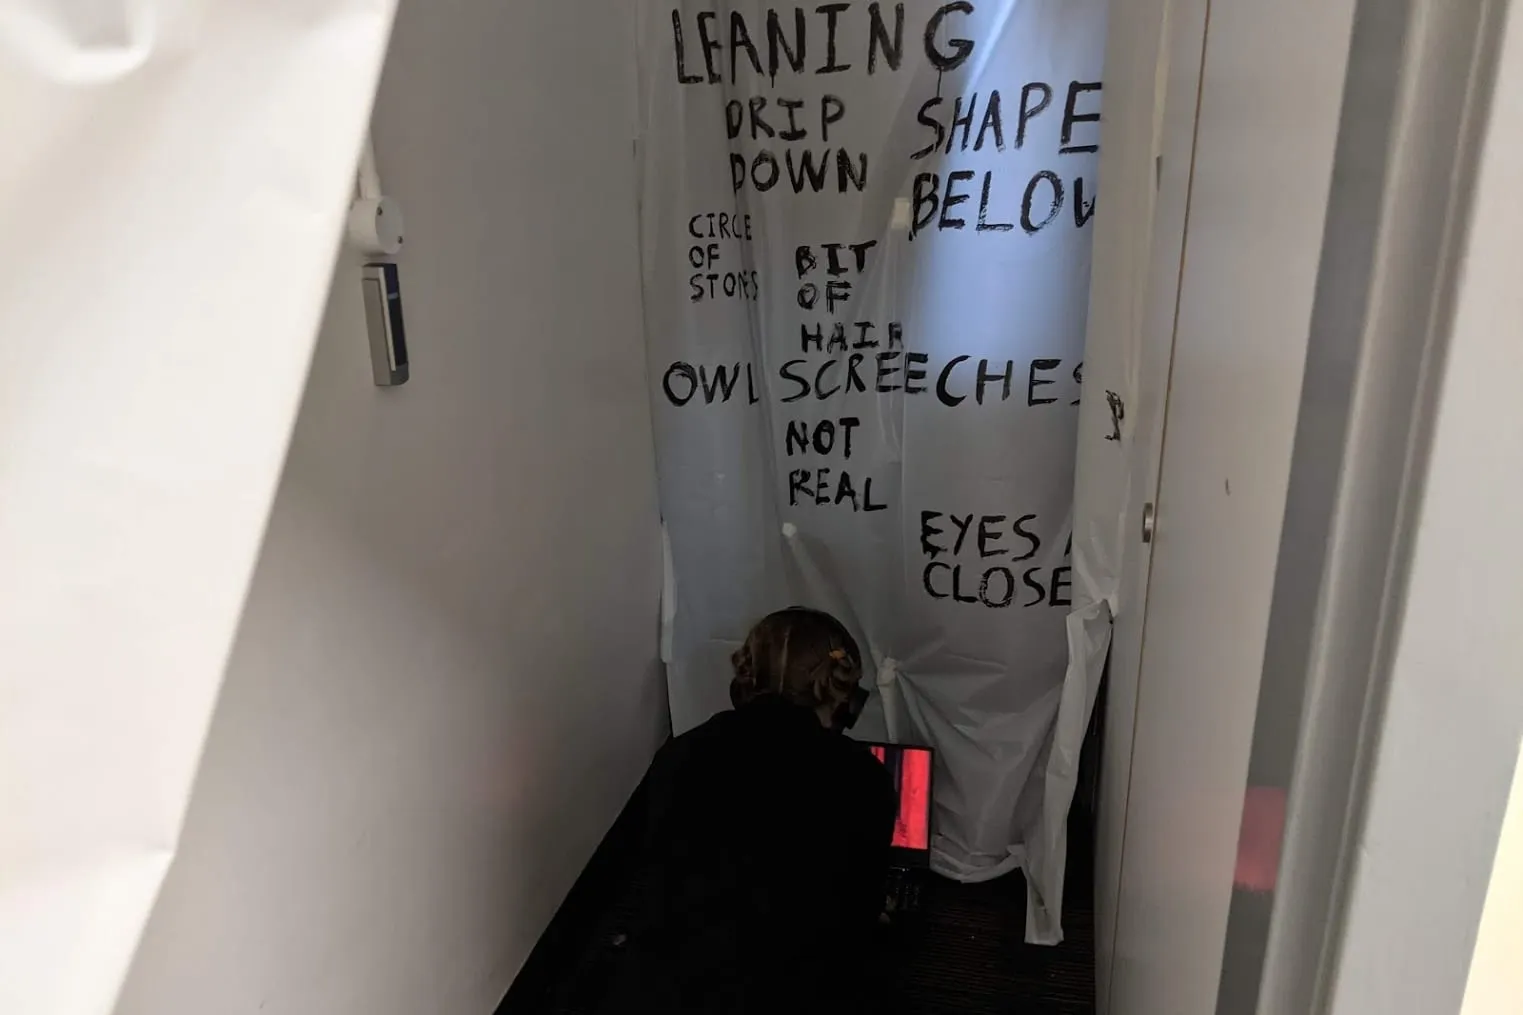 LEANING
DRIP
DOWN
SHAPE
BELOW
CIRCLE
OF
STONES
BIT
OF
HAIR
OWL SCREECHES
NOT
REAL
EYES
CLOSE